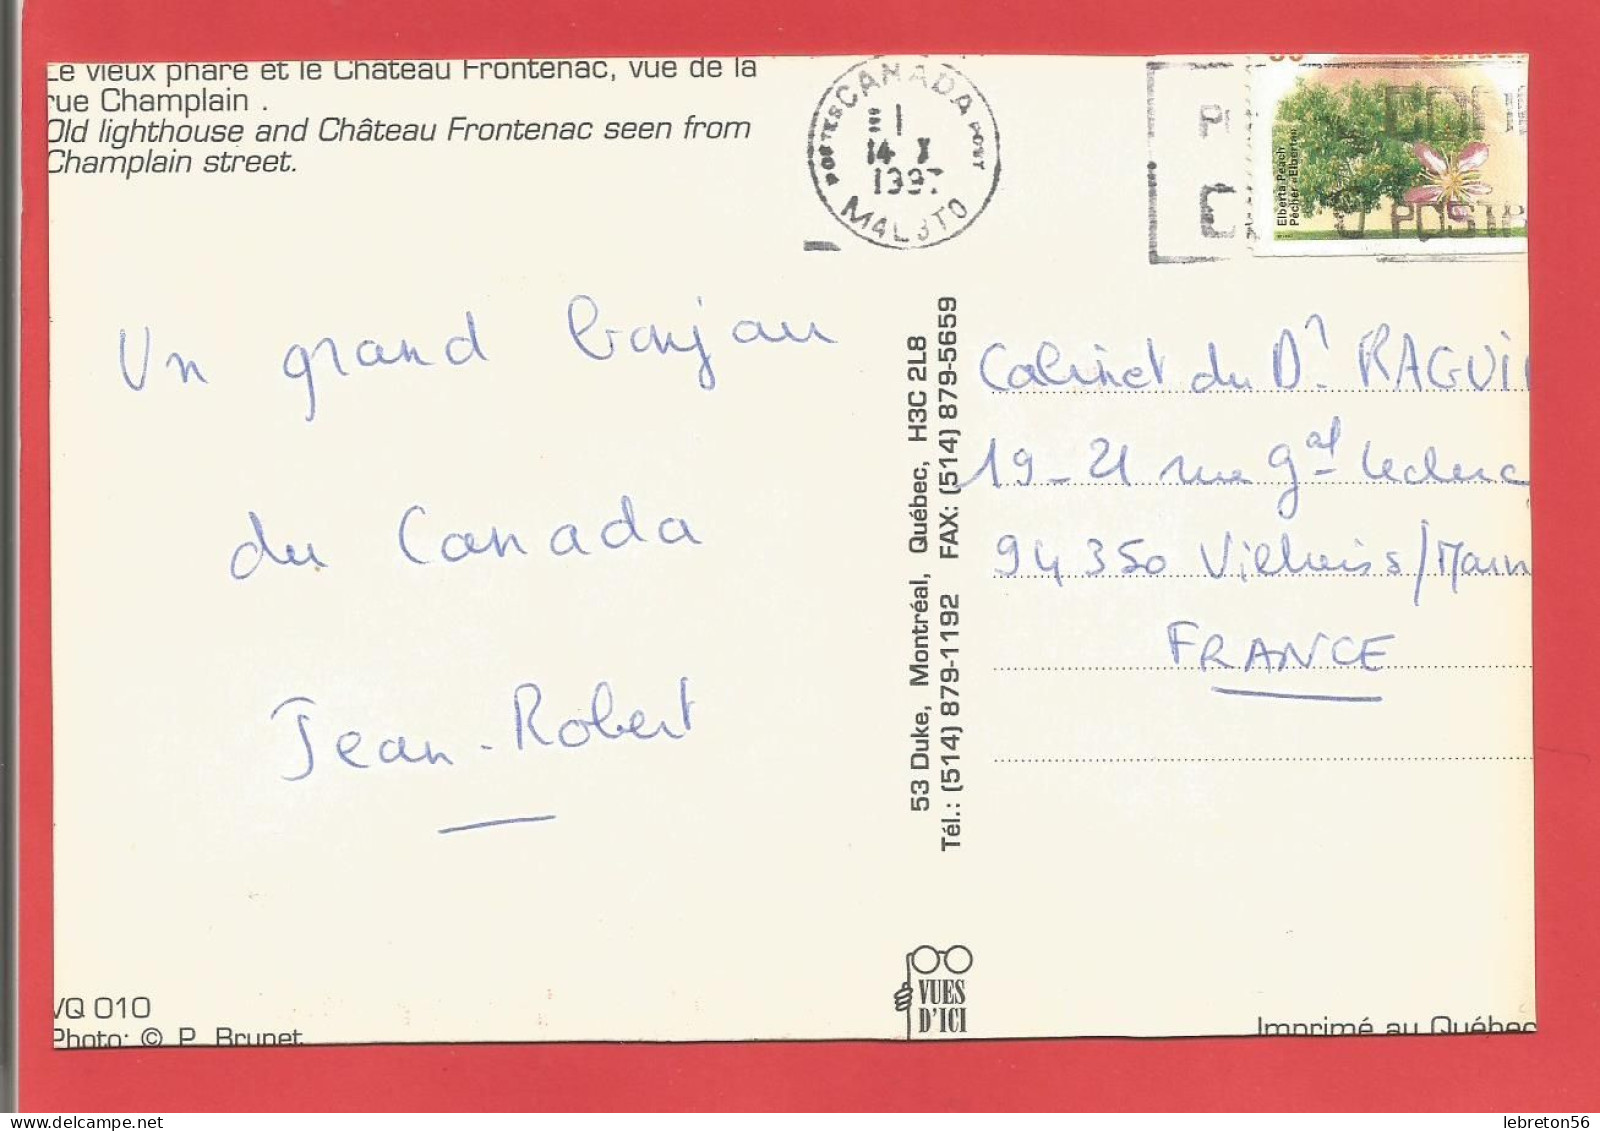 Le vieux phare et le Château Frontenac, vue de la
rue Champlain .
Old lighthouse and Château Frontenac seen from
Champlain street.
POSTES CANADA POST
14 X
1997
M4L3T0
Elberta Peach
Pêcher «Elberta»
POST
Un grand bonjour
du Canada
Jean-Robert
53 Duke, Montréal, Québec, H3C 2L8
Tél.: (514) 879-1192 FAX: (514) 879-5659
Cabinet du Dr RAGUI
19-21 rue Gal Leclerc
94350 Villiers/Marn
FRANCE
VUES
D'ICI
VQ 010
Photo: © P. Brunet
Imprimé au Québec
lebreton56